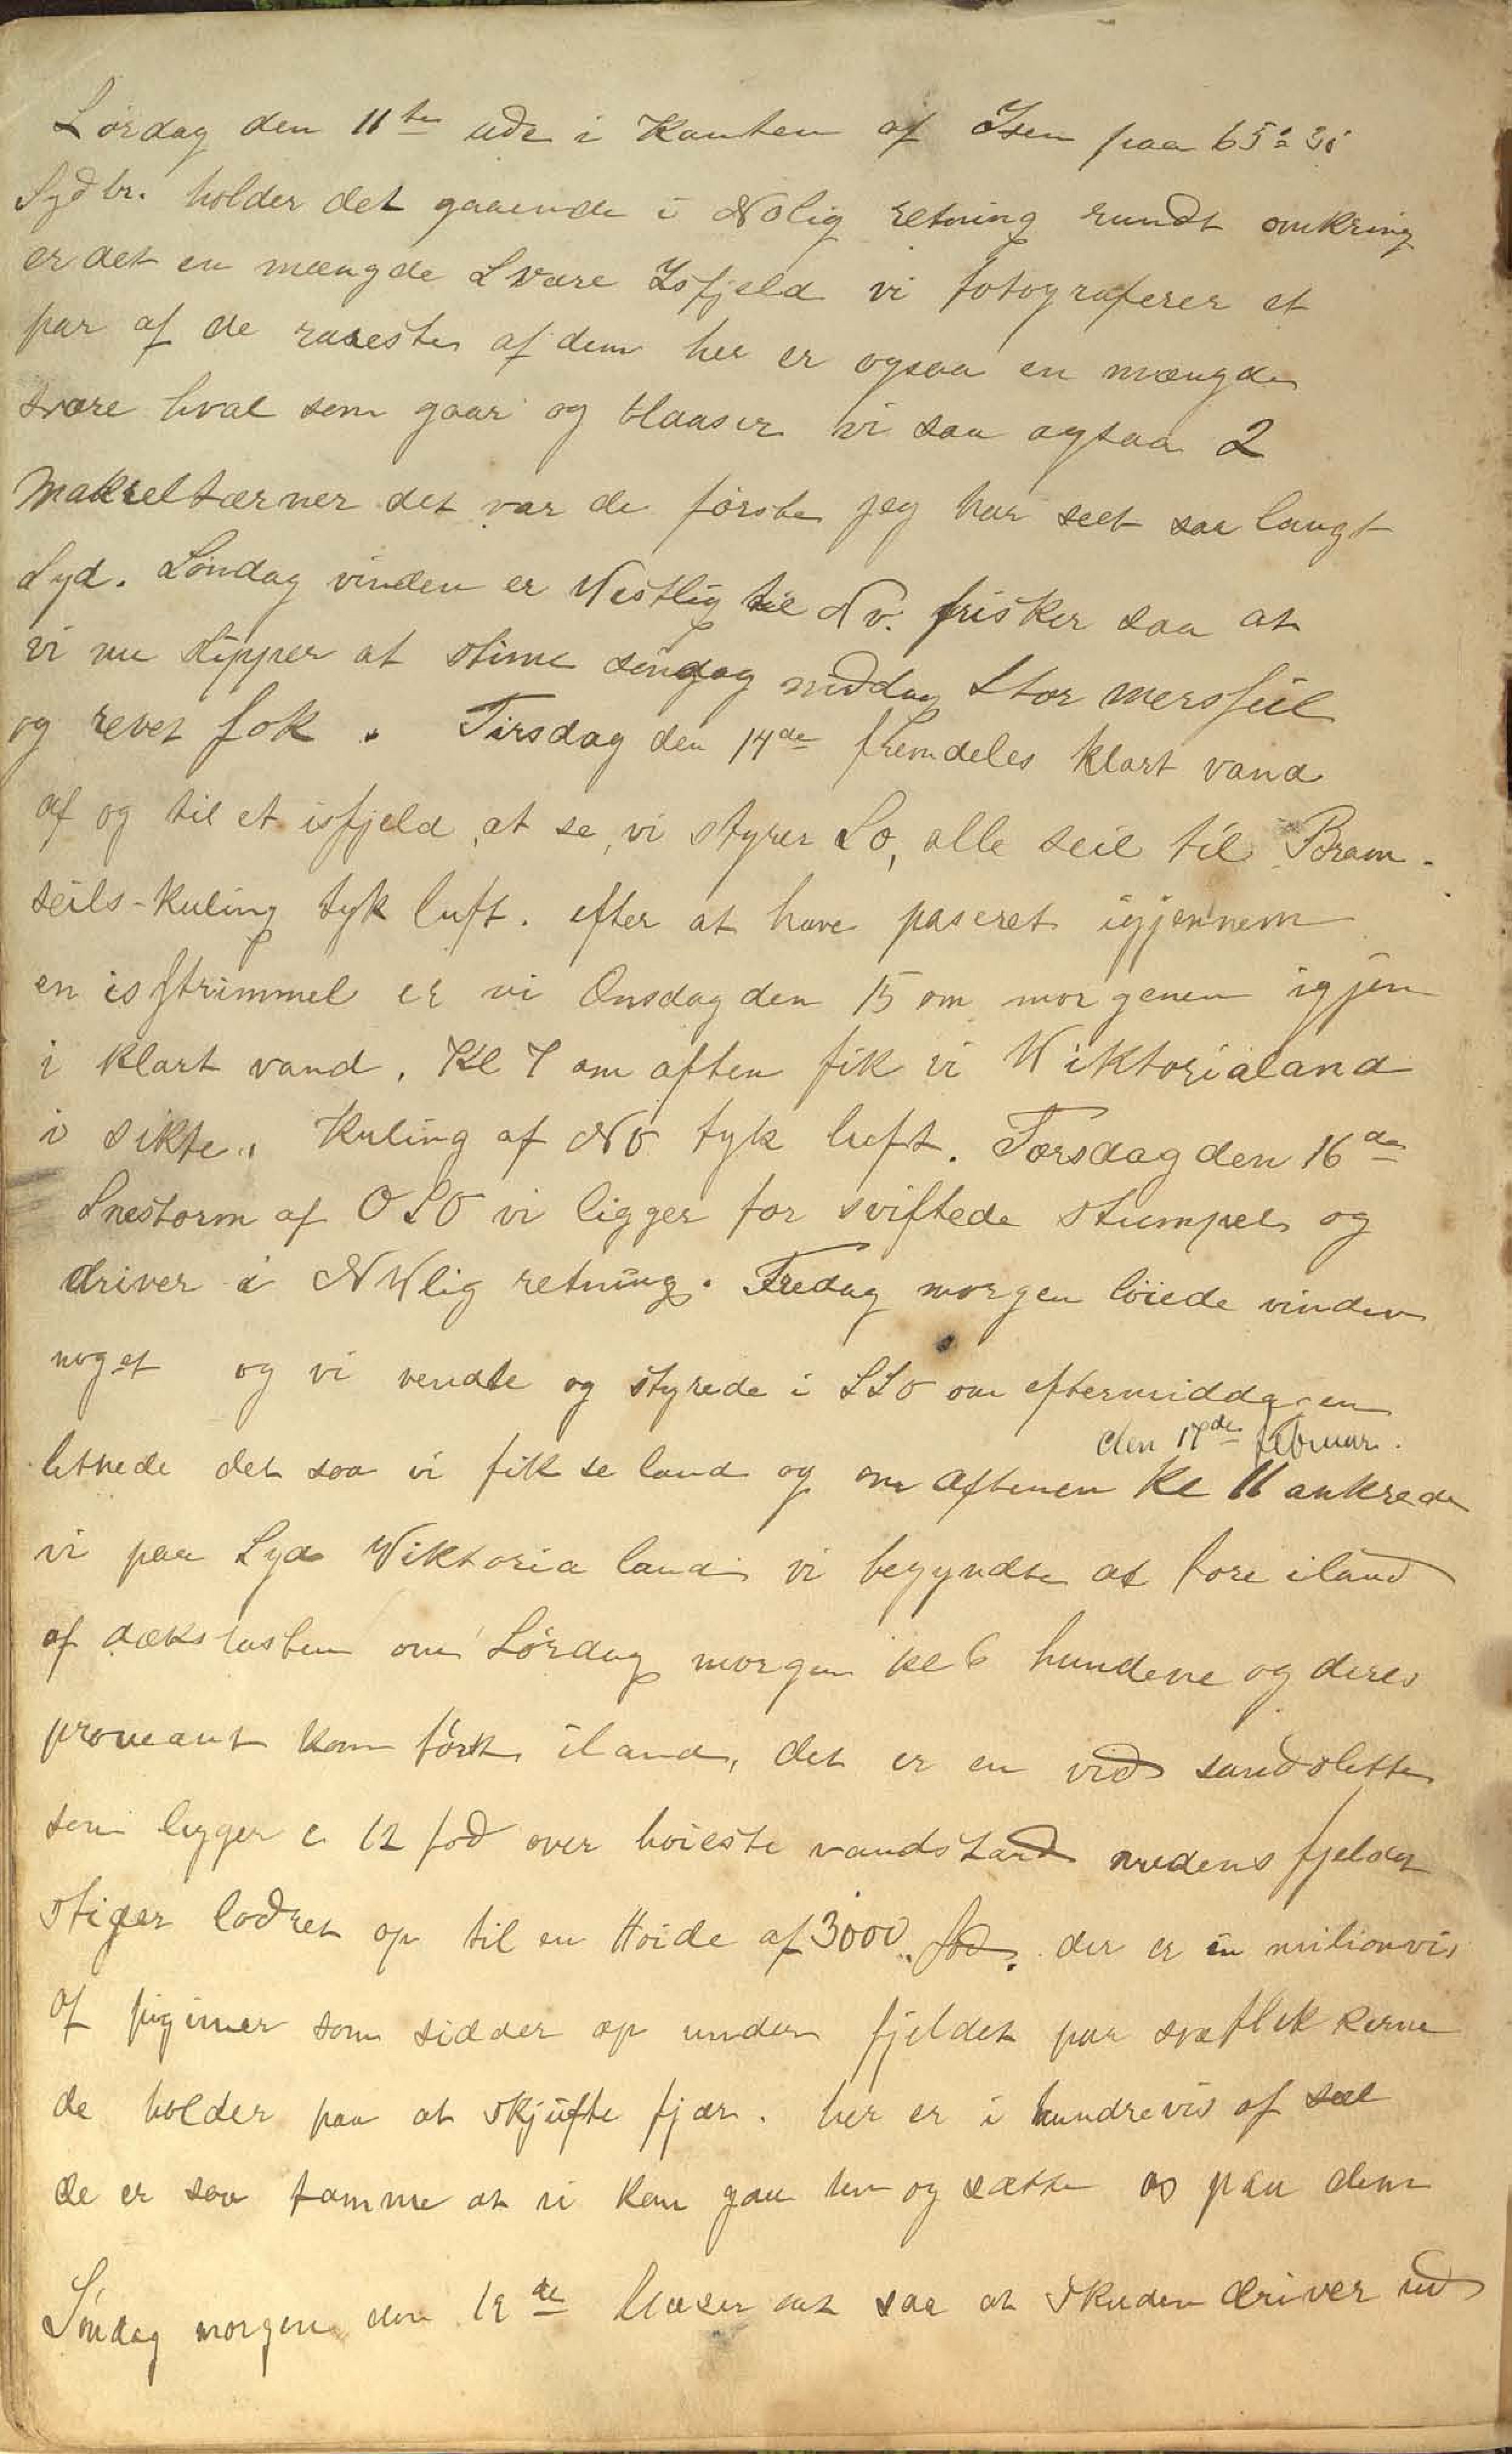 Lørdag den 11te ude i Kanten af Isen paa 65° 31'
Sydbr. holder det gaaende i Nolig retning rundt omkring
er det en mængde Svære Isfjeld vi fotograferer et
par af de rareste af dem her er ogsaa en mængde
svære hval som gaar og blaaser vi saa ogsaa 2
Makreltærner det var de første jeg har seet saa langt
Syd. Søndag vinden er Westlig til Nv. frisker saa at
vi nu slipper at stime søndag middag Stor mersseil
og revet fok. Tirsdag den 14de fremdeles klart vand
af og til et isfjeld at se, vi styrer So, alle seil til Bram-
seils-kuling tyk luft. efter at have paseret igjennem
en isstrimmel er vi Onsdag den 15 om morgenen igjen
i klart vand. Kl 7 om aften fik vi Wiktorialand
i sikte. Kuling af NO tyk luft. Torsdag den 16de
Snestorm af OSO vi ligger for sviftede stumper og
driver i NWlig retning. Fredag morgen løiede vinden
noget og vi vendte og styrede i SSO om eftermiddagen
den 17de februar.
letnede det saa vi fik se land og om aftenen Kl 11 ankrede
vi paa Syd Wiktoria land vi begyndte at føre iland
af dækslasten om Lørdag morgen kl 6 hundene og deres
proveant kom først iland, det er en vid sandslette
som ligger c 12 fod over høieste vandstand medens fjeldet
stiger lodret op til en Høide af 3000 fod. der er in milionvis
af pigviner som sidder op under fjeldet paa sneflekkerne
de holder paa at skjufte fjær. her er i hundrevis af sæl
de er saa tamme at vi kan gaa hen og sætte os paa dem
Søndag morgen den 19de blæser det saa at Skuden driver ud